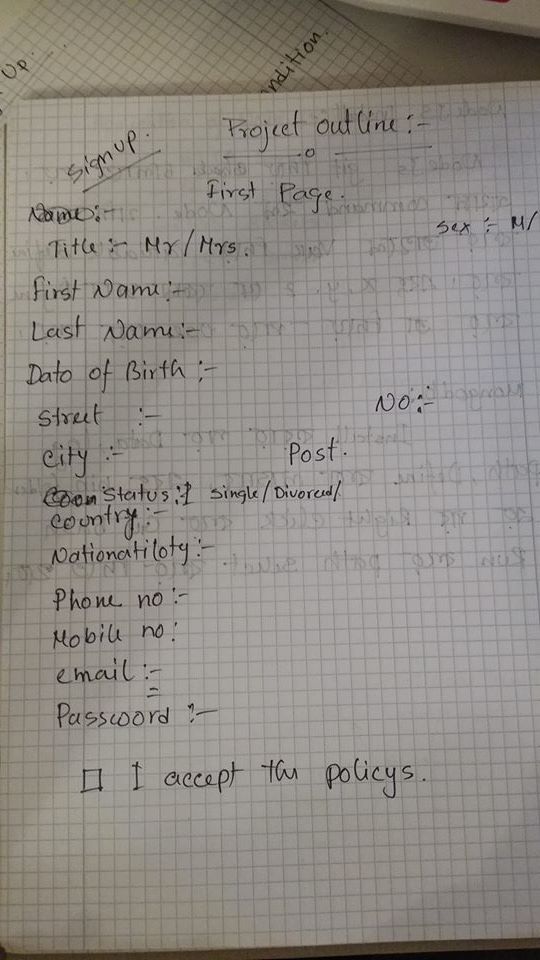 Up.
ndition.
signup.
Project outline :-
First Page.
Name:-
Sex :- M/
Title :- Mr/Mrs.
First Name:-
Last Name:-
Dato of Birth :-
Street :-
No:-
City :-
Post.
Status: Single/Divorced/
Country:-
Nationatiloty:-
Phone no :-
Mobile no:
email :-
Passcoord :-
□ I accept the policys.